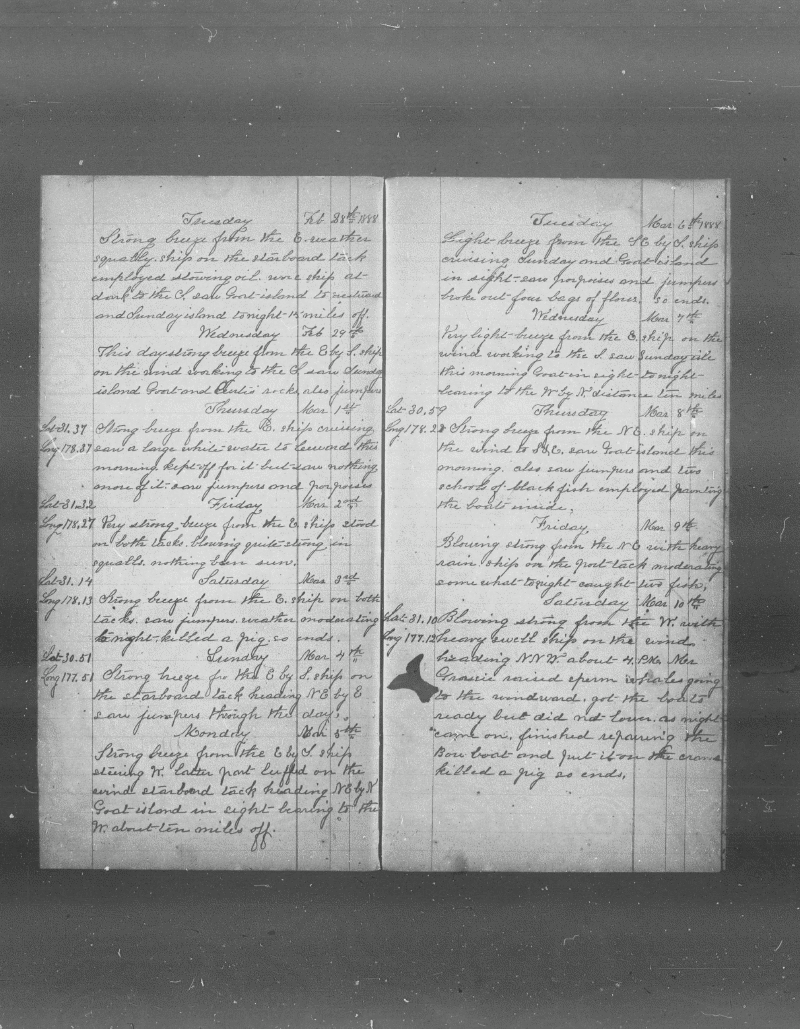 Tuesday Feb 28th 1888
Strong breeze from the E. weather
squally. ship on the starboard tack
employed stowing oil. wore ship at
dark to the S. saw Goat island to westward
and Sunday island tonight 15 miles off.
Wednesday Feb 29th
This day strong breeze from the E by S. ship
on the wind working to the S. saw Sunday
island Goat and Curtis rocks, also jumpers
Thursday Mar 1st
Lat 31.37 Strong breeze from the E. ship cruising,
Long 178.37 saw a large white water to leward this
morning kept off for it but saw nothing
more of it. saw jumpers and porpoises
Lat 31.32 Friday Mar 2nd
Long 178.27 Very strong breeze from the E. ship stood
on both tacks. blowing quite strong in
squalls. nothing been seen.
Lat 31.14 Saturday Mar 3rd
Long 178.13 Strong breeze from the E. ship on both
tacks. saw jumpers. weather moderating
tonight. killed a pig, so ends.
Lat 30.51 Sunday Mar 4th
Long 177.51 Strong breeze fro the E by S. ship on
the starboard tack heading N E by E
saw jumpers through the day.
Monday Mar 5th
Strong breeze from the E by S. ship
stering W. latter part luffed on the
wind starboard tack heading N E by N
Goat island in sight bearing to the
W. about ten miles off.
Tuesday Mar 6th 1888
Light breeze from the S E by S. ship
cruising, Sunday and Goat island
in sight. saw porpoises and jumpers
broke out four bags of flour. so ends.
Wednesday Mar 7th
Very light breeze from the E. ship on the
wind working to the S. saw Sunday isle
this morning Goat in sight tonight
bearing to the W by N. distance ten miles
Lat 30.59 Thursday Mar 8th
Long 178.28 Strong breeze from the N E. ship on
the wind to S. E. saw Goat island this
morning. also saw jumpers and two
schools of black fish employed painting
the boats inside.
Friday Mar 9th
Blowing strong from the N E with heavy
rain, ship on the port tack moderating
some what tonight caught two fish,
Saturday Mar 10th
Lat 31.10 Blowing strong from the W. with
Long 177.12 heavy swell ship on the wind
heading N N W. about 4. P.M. Mr
Grassie raised sperm whales going
to the windward. got the boats
ready but did not lower. as night
came on. finished repairing the
Bow boat and put it on the crane
killed a pig so ends.